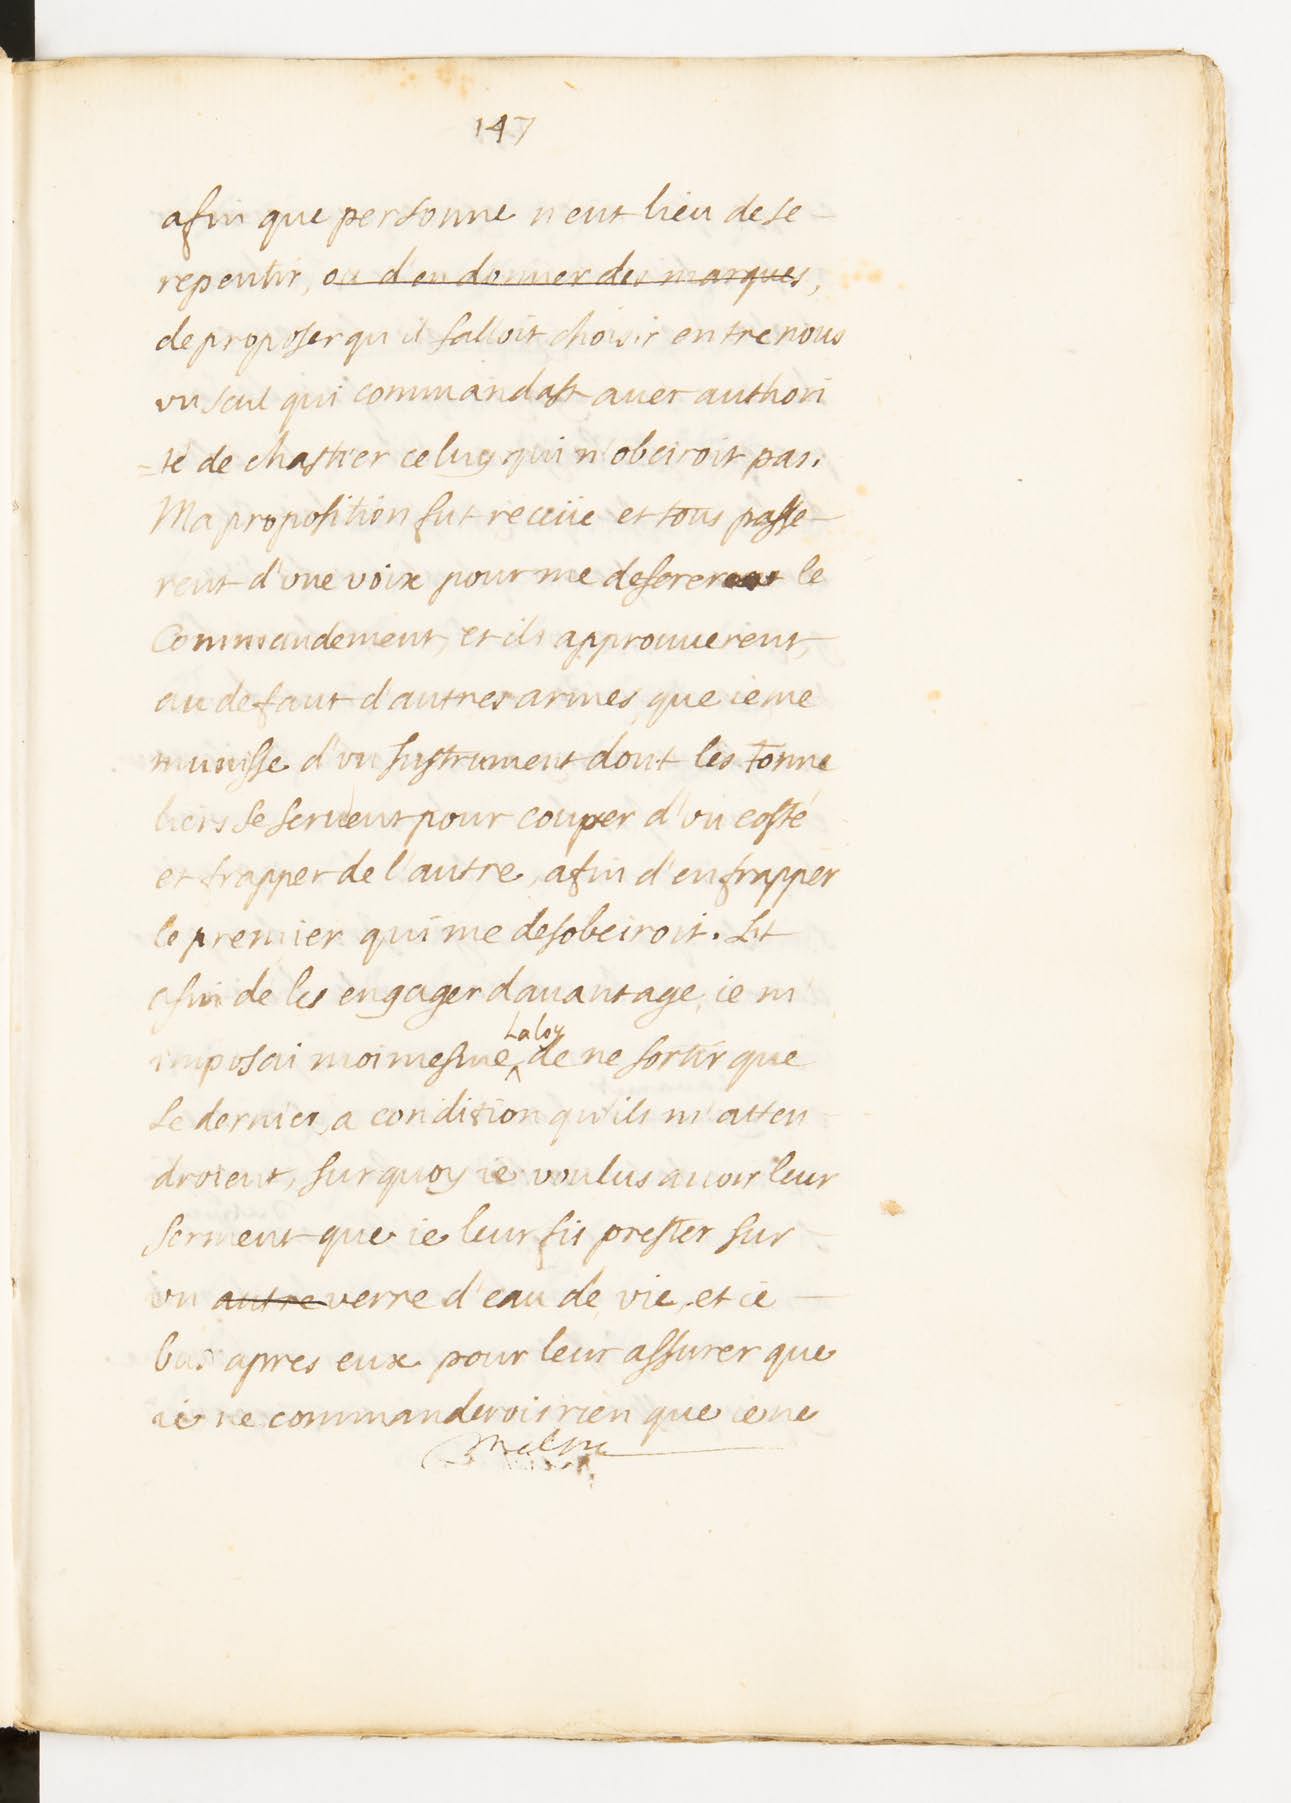 147
afin que personne n eut lieu de se
repentir, ou d'en donner des marques,
de proposer qu il falloit choisir entre nous
vn seul qui commandast auec authori
=té de chastier celuy qui n'obeiroit pas.
Ma proposition fut receüe et tous passe
rent d'vne voix pour me deferer le
Commandement, et ils approuuerent,
au defaut d autres armes, que ie me
munisse d'vn Instrument dont les Tonne
liers se seruent pour couper d'vn costé
et frapper de l'autre, afin d'en frapper
le premier qui me desobeiroit. Et
afin de les engager dauantage, ie m'
imposai moi mesme la loy de ne sortir que
le dernier, a condition qu'ils m'atten
droient, surquoy ie voulus auoir leur
serment que ie leur fis prester sur
vn autre verre d'eau de vie, et ie
bus apres eux pour leur assurer que
ie ne commanderois rien que ie ne